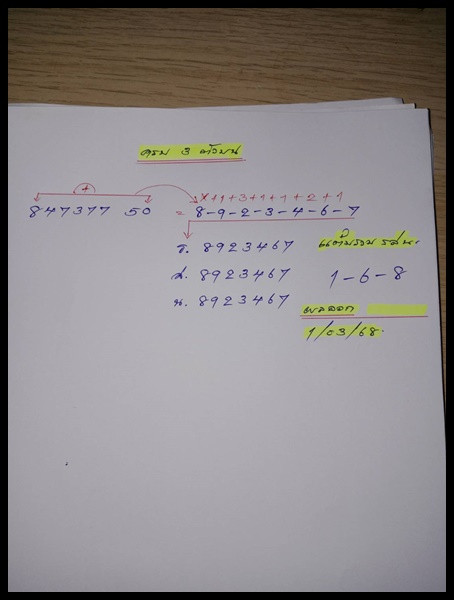 ครบ 3 ตัวบน
+
x+1+3+1+1+2+1
847377 50 = 8-9-2-3-4-6-7
ร. 8923467
แต้มรวม
ส. 8923467
1-6-8
น. 8923467
ผลออก
1/03/68